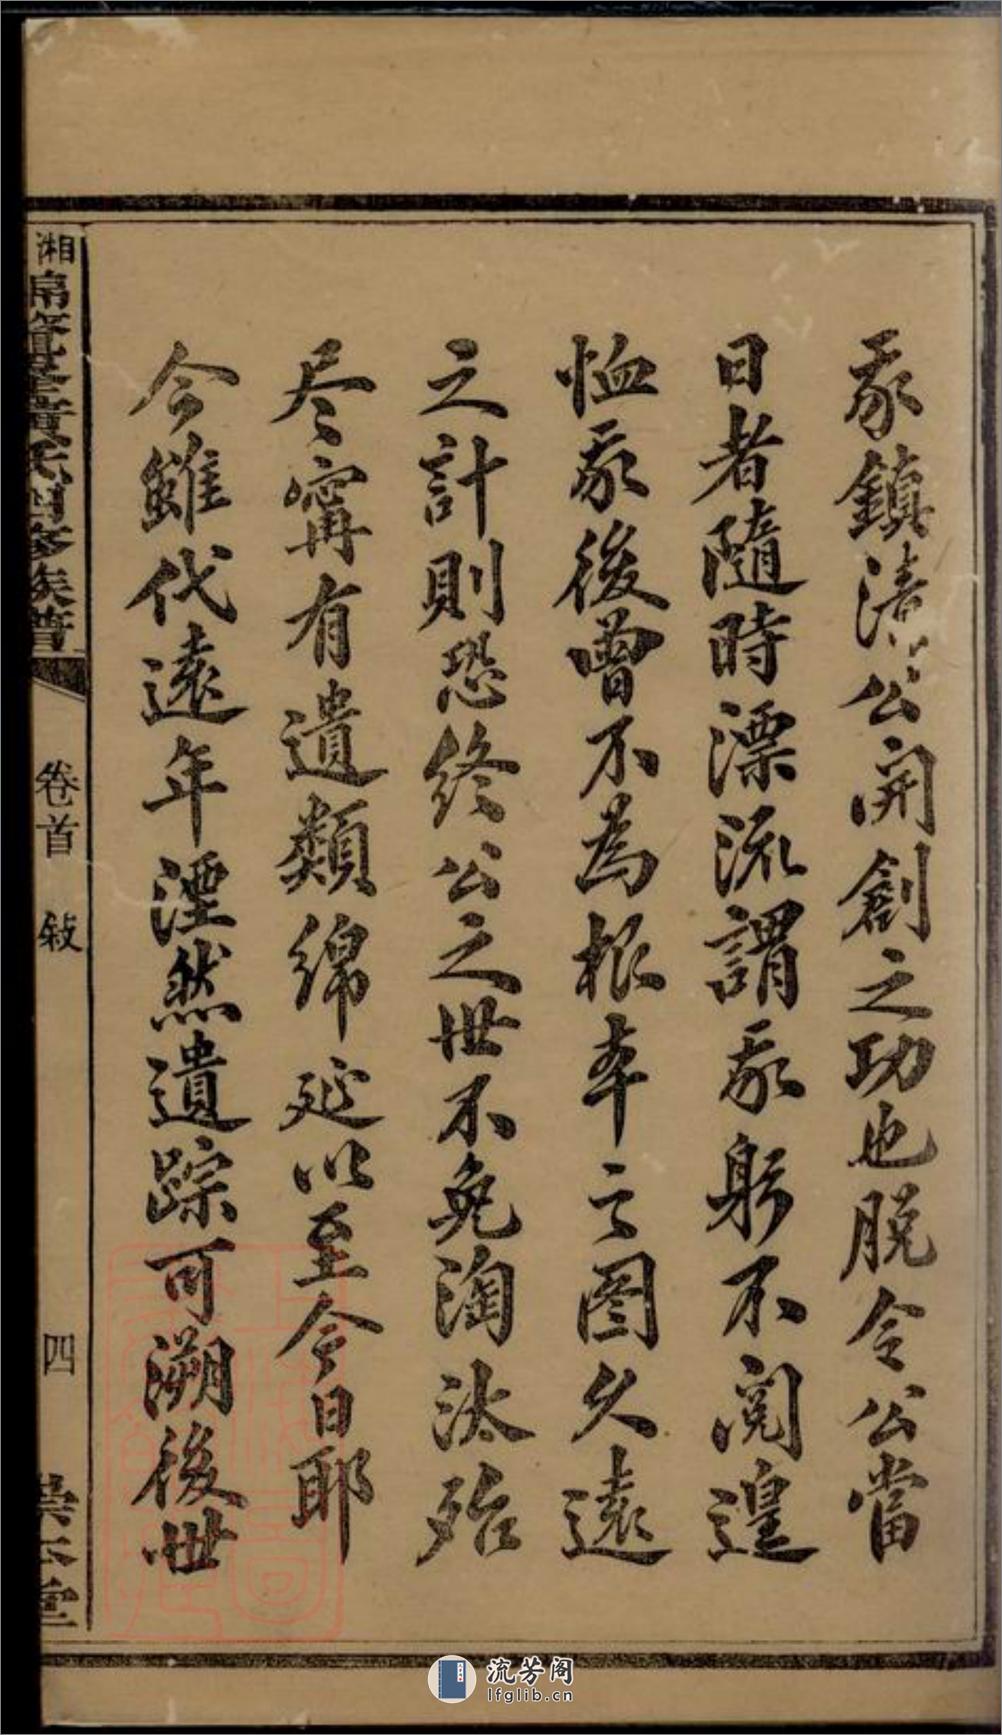 我鎮清公開創之功也脫令公當
日者隨時漂流謂我躬不閱遑
恤我後曾不為根本之圖久遠
之計則恐終公之世不免淘汰殆
尽寗有遺類綿延以至今日耶
今雖代遠年湮然遺踪可溯後世
黃氏四修族譜
卷首
敍
四
堂
流芳阁
lfglib.cn